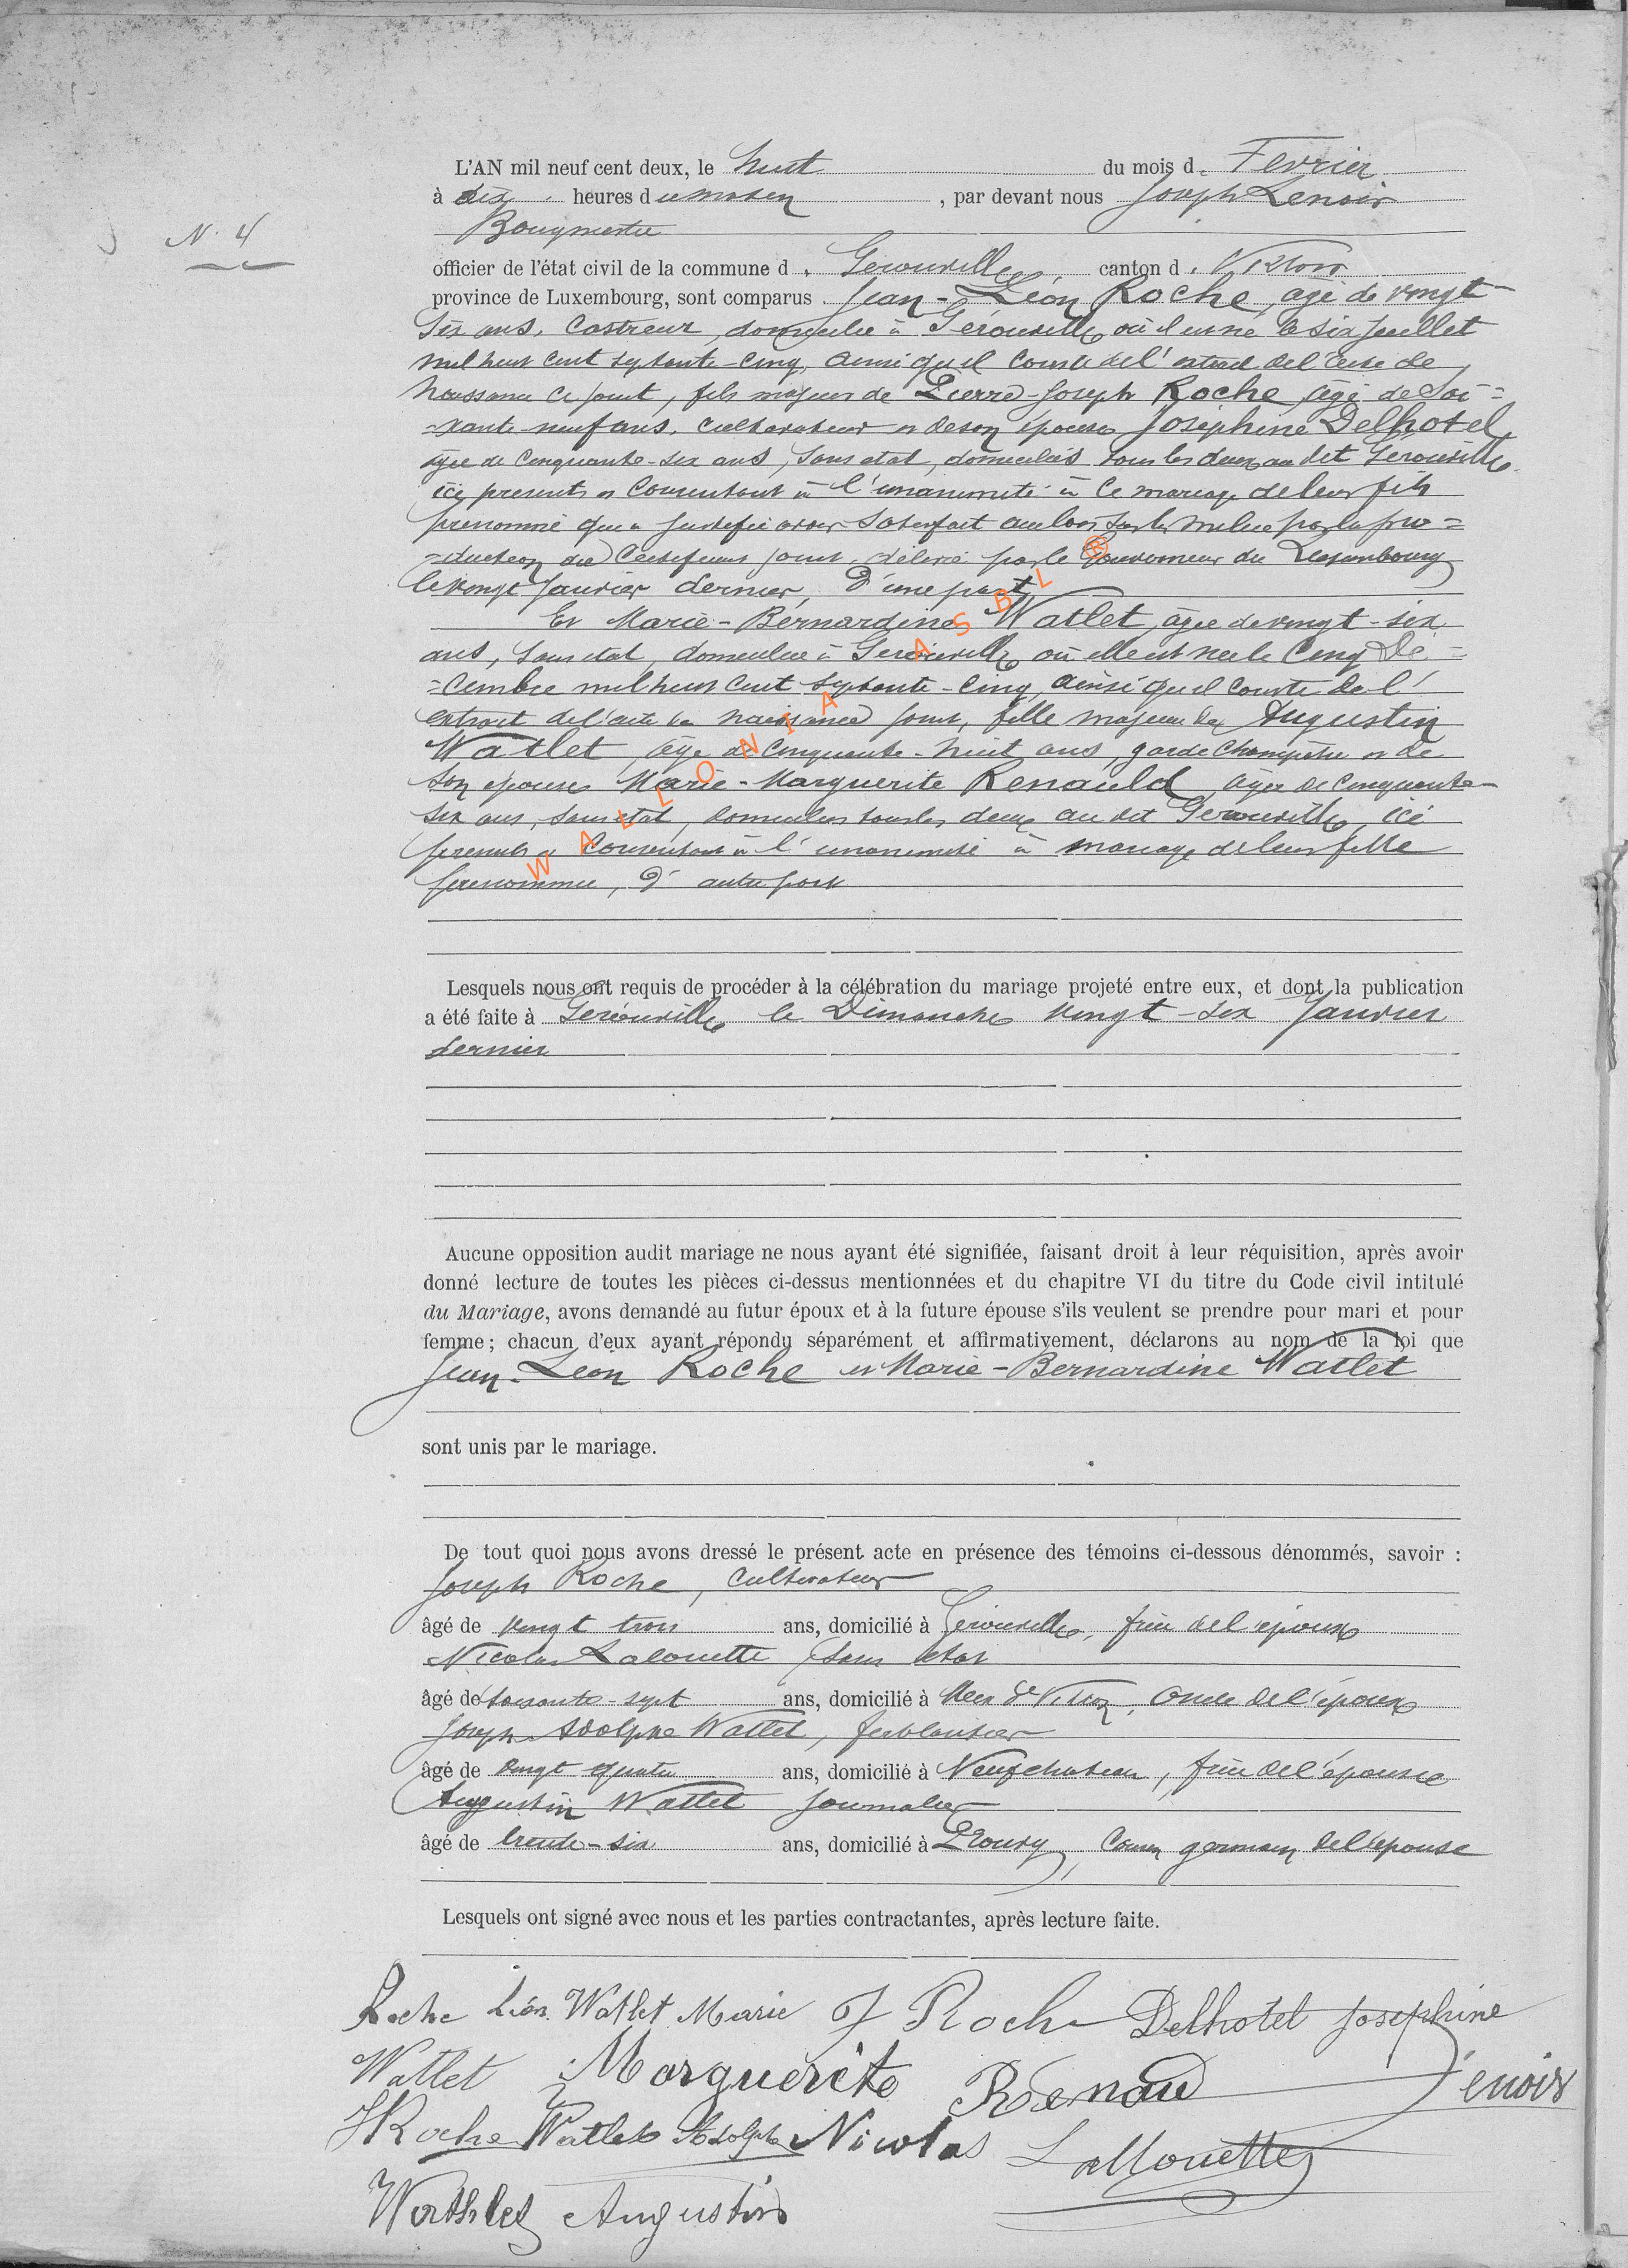 N. 4
L'AN mil neuf cent deux, le huit du mois d. Fevrier
à dix heures du matin, par devant nous Joseph Lenoir
Bourgmestre
officier de l'état civil de la commune d. Gerouville canton d. Virton
province de Luxembourg, sont comparus Jean-Léon Roche, agé de vingt-
six ans, castreur, domicilié à Gérouville où il est né le six juillet
mil huit cent septante-cinq, ainsi qu'il conste de l'extrait de l'acte de
naissance ci joint, fils majeur de Pierre-Joseph Roche, âgé de soi=
=xante neuf ans, cultivateur et de son épouse Joséphine Delhotel
agée de cinquante-six ans, sans etat, domiciliés tous les deux au dit Gérouville
ici presents et consentant à l'unanimité à ce mariage de leur fils
prénommé qui a justifié avoir satisfait aux lois sur la milice par la pro=
=duction du certificat joint délivré par le Gouverneur du Luxembourg
le vingt Janvier dernier, D'une part
Et Marie-Bernardine Watlet, âgée de vingt-six
ans, sans etat, domiciliée à Gerouville où elle est née le cinq Dé=
=cembre mil huit cent septante-cinq, ainsi qu'il conste de l'
extrait de l'acte de naissance joint, fille majeure de Augustin
Watlet, âgé de cinquante-huit ans, garde champêtre et de
son épouse Marie-Marguerite Renauld âgée de cinquante-
six ans, sans etat, domiciliés tous les deux au dit Gerouville, ici
presents et consentant à l'unanimité à mariage de leur fille
prénommée, D'autre part
WALLONIA ASBL ®
Lesquels nous ont requis de procéder à la célébration du mariage projeté entre eux, et dont la publication
a été faite à Gérouville le Dimanche vingt-six Janvier
dernier
Aucune opposition audit mariage ne nous ayant été signifiée, faisant droit à leur réquisition, après avoir
donné lecture de toutes les pièces ci-dessus mentionnées et du chapitre VI du titre du Code civil intitulé
du Mariage, avons demandé au futur époux et à la future épouse s'ils veulent se prendre pour mari et pour
femme; chacun d'eux ayant répondu séparément et affirmativement, déclarons au nom de la loi que
Jean-Léon Roche et Marie-Bernardine Watlet
sont unis par le mariage.
De tout quoi nous avons dressé le présent acte en présence des témoins ci-dessous dénommés, savoir :
Joseph Roche, cultivateur
âgé de vingt trois ans, domicilié à Gérouville, frère de l'époux
Nicolas Lalouette sans etat
âgé de soixante-sept ans, domicilié à Meix Dt Virton, oncle de l'époux
Joseph Adolphe Watlet, ferblantier
âgé de vingt quatre ans, domicilié à Neufchateau, frère de l'épouse
Augustin Watlet journalier
âgé de trente-six ans, domicilié à cousin germain de l'épouse
Lesquels ont signé avec nous et les parties contractantes, après lecture faite.
Roche Léon Watlet Marie J Roche Delhotel Josephine
Watlet Marguerite Renaud Lenoir
J Roche Watlet Adolphe Nicolas Lallouette
Wathlet Augustin